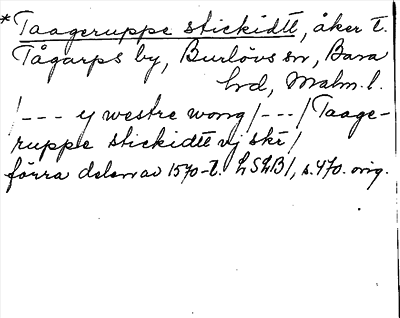 *Taageruppe stickidtt, åker t.
Tågarps by, Burlövs sn, Bara
hrd, Malm. l.
/--- y westre wong/---/Taage-
ruppe stickidtt vj skr/
förra delen av 1570-t. LSLB1, s. 470. orig.